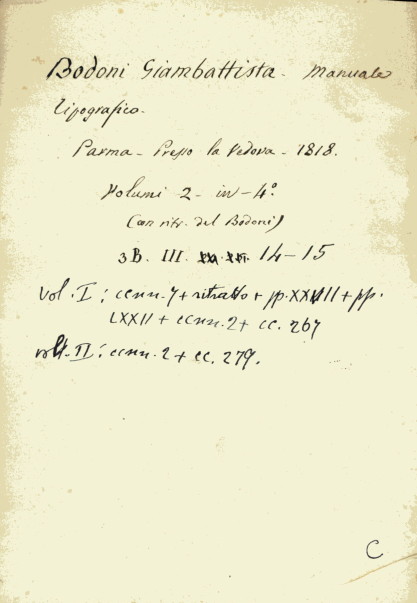 Bodoni Giambattista - Manuale
tipografico.
Parma - Presso la Vedova - 1818.
Volumi 2 - in - 4°
(con ritr. del Bodoni)
3B. III. 14-15
vol. I: ccnn. 7 + ritratto + pp. XXVIII + pp.
LXXII + ccnn. 2 + cc. 267
vol. II: ccnn. 2 + cc. 279.
C